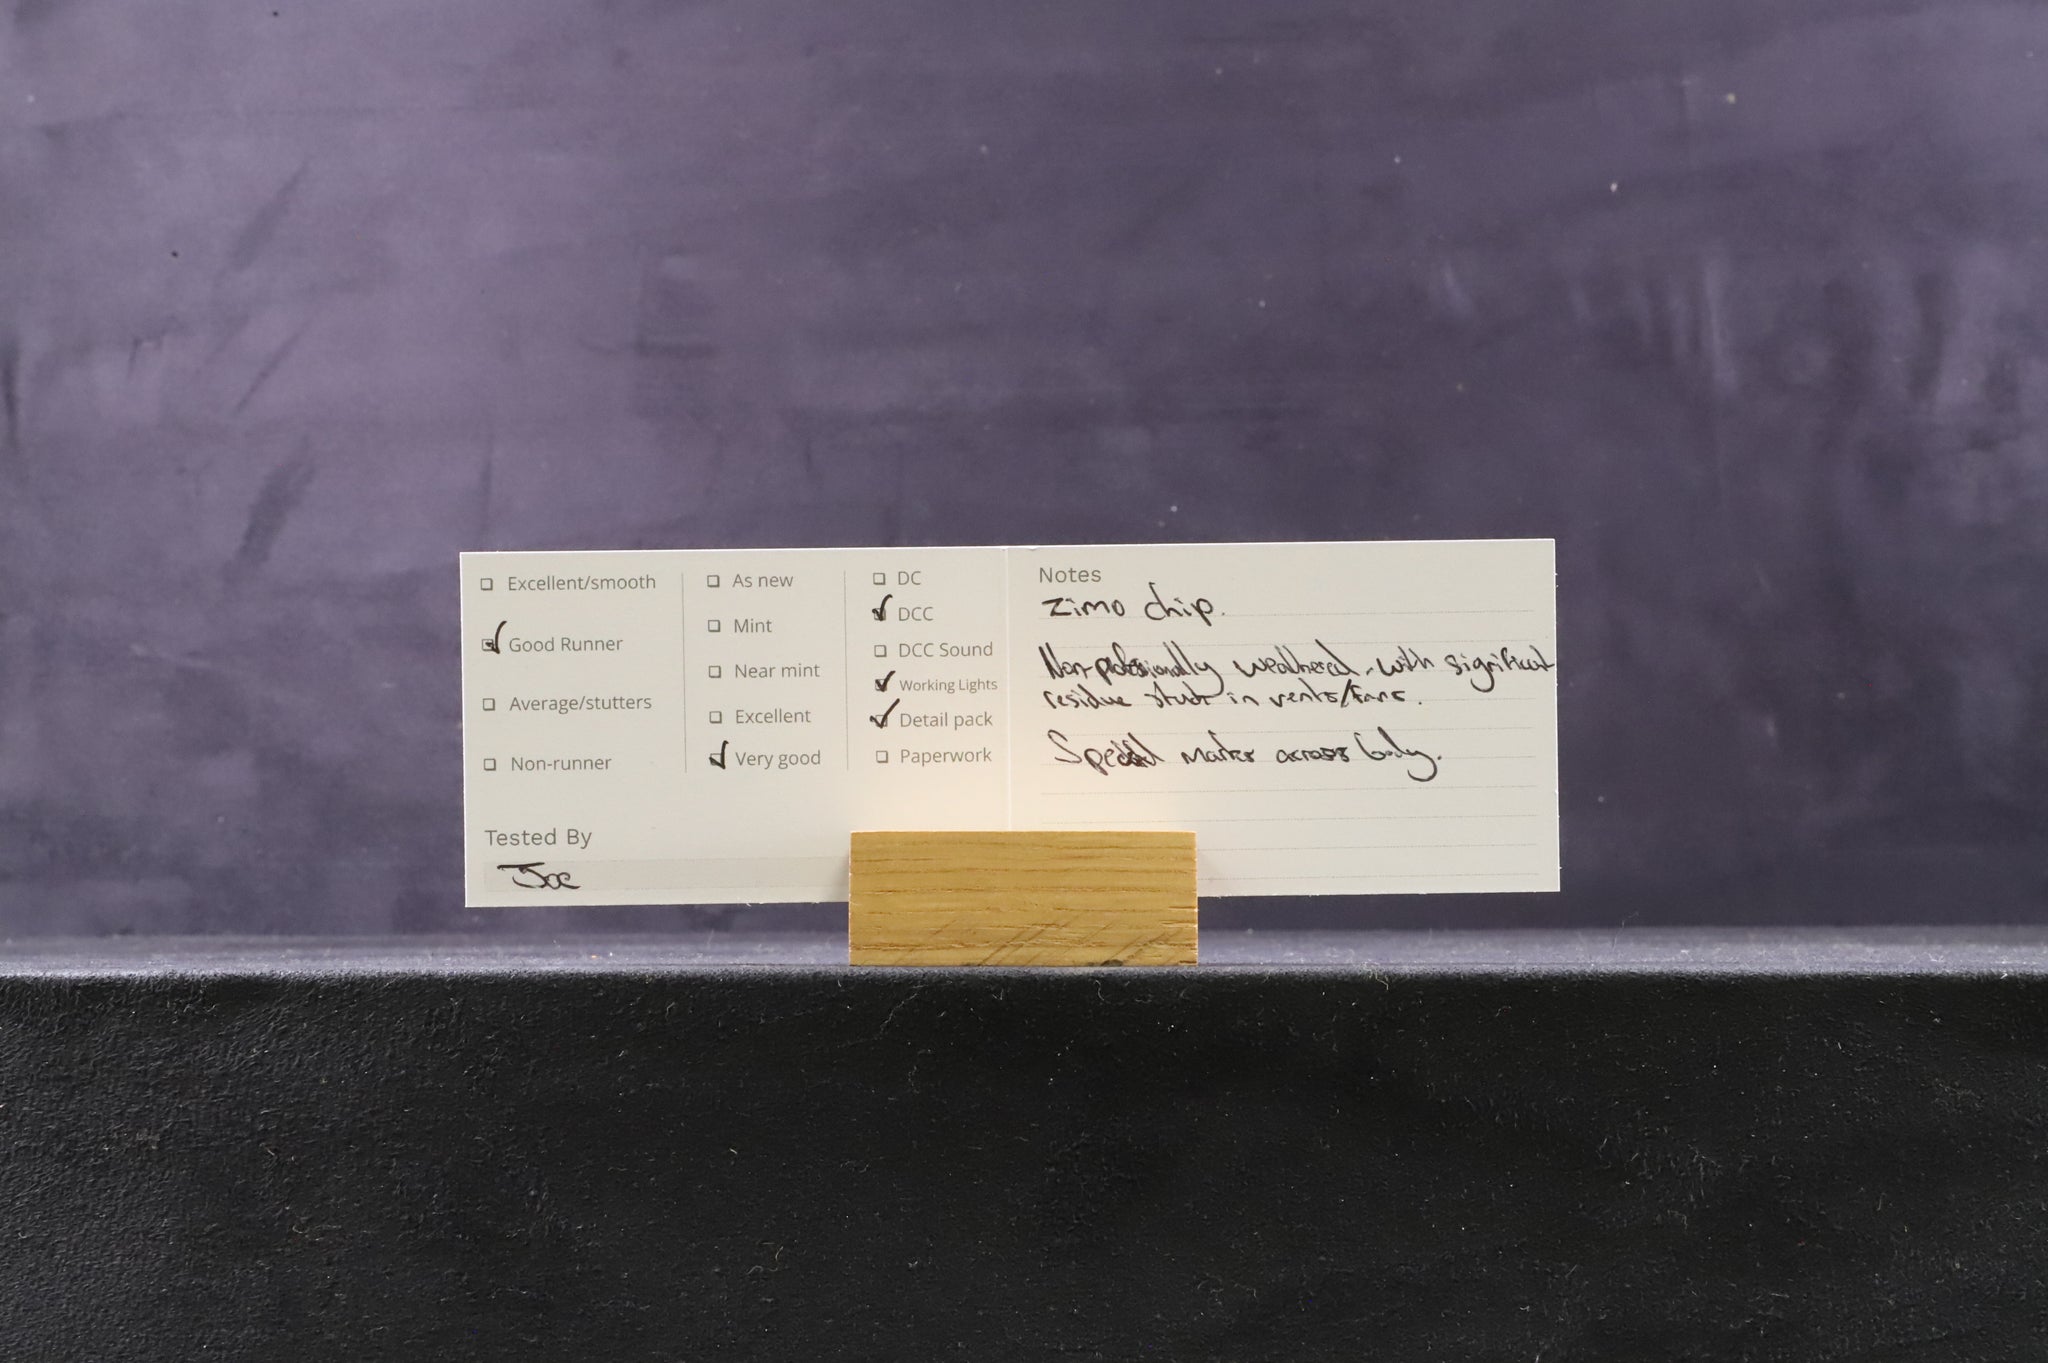 ☐ Excellent/smooth
☑ Good Runner
☐ Average/stutters
☐ Non-runner
Tested By
Joe
☐ As new
☐ Mint
☐ Near mint
☐ Excellent
☑ Very good
☐ DC
☑ DCC
☐ DCC Sound
☑ Working Lights
☑ Detail pack
☐ Paperwork
Notes
Zimo chip.
Non-professionally weathered, with significant
residue stuck in vents/fans.
marks across body.